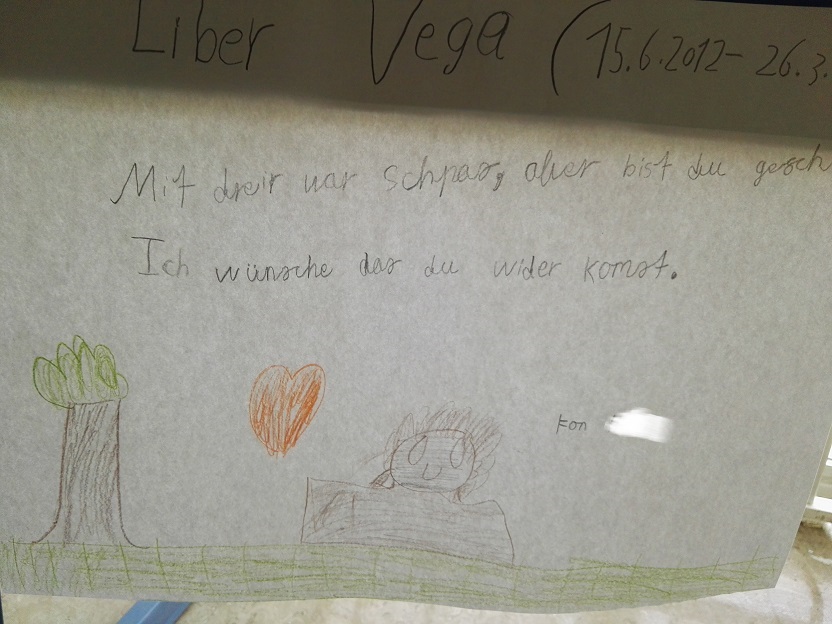 Liber Vega (15.6.2012- 26.3.
Mit dreir war Schpas, aber bist du gesch
Ich wünsche das du wider komst.
Fon